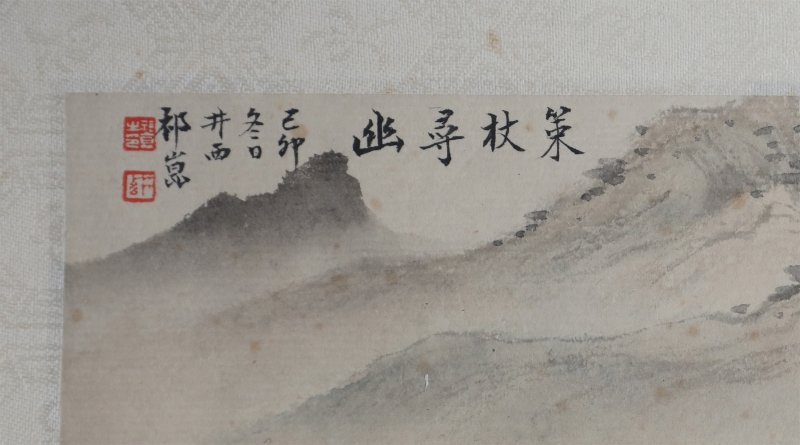 策杖尋幽
己卯
冬日
井西
祁崑